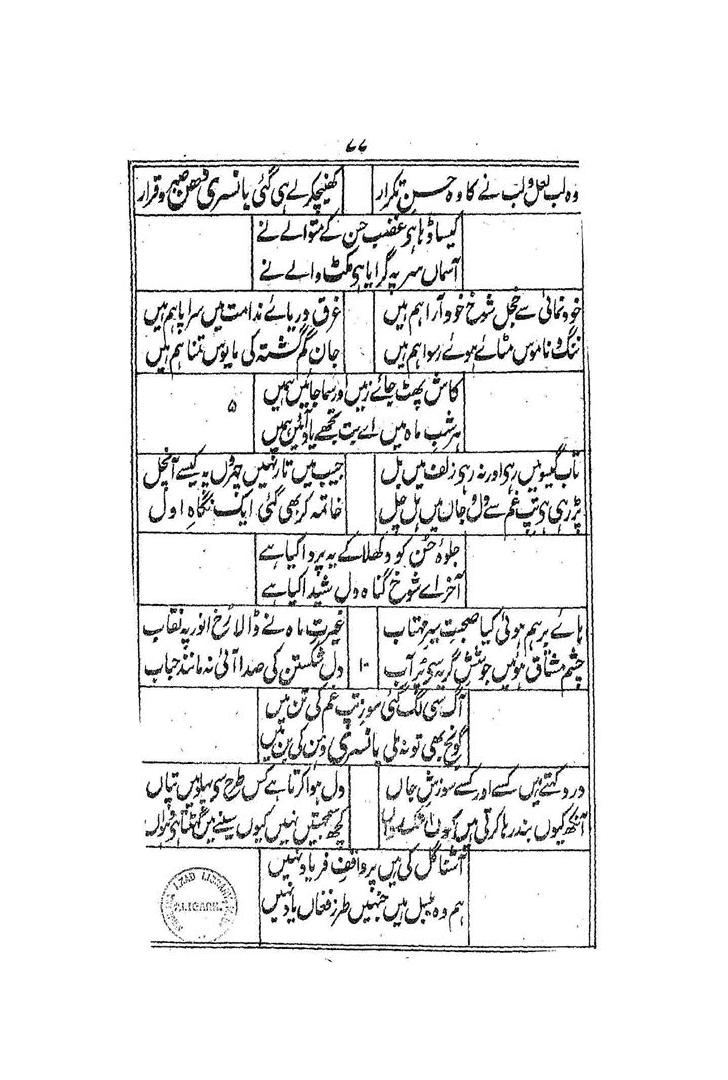 ۷۷
وہ لب لعل و لب نے کا وہ حسن تکرار کھینچکر لے ہی گئی بانسری دھن صبر و قرار
کیسا ڈہایا ہی غضب حسن کے متوالے نے
آسماں سر پہ گرایا ہی مکٹ والے نے
خود نمائی سے خجل شوخ خود آرا ہم ہیں غرق دریائے ندامت میں سراپا ہم ہیں
ننگ و ناموس مٹائے ہوئے رسوا ہم ہیں جان گم گشتہ کی مایوس تمنا ہم ہیں
کاش پھٹ جائے زمیں اور سما جائیں ہمیں
۵
ہر شب ماہ میں اے بت تجھے یاد آئیں ہمیں
تاب گیسو میں رہی اور نہ رہی زلف میں بل جیب میں تار نہیں چہروں پہ کیسے آنچل
پڑ رہی ہی تپ غم سے دل و جاں میں ہل چل خاتمہ کر بھی گئی ایک نگاہ اول
جلوۂ حسن کو دکھلا کے یہ پردا کیا ہے
آخر اے شوخ گناہ دل شیدا کیا ہے
ہائے برہم ہوئی کیا صحبت سیر مہتاب غیرت ماہ نے ڈالا رخ انور پہ نقاب
چشم مشتاق ہوئیں جوشش گریہ سی پر آب ۱۰ دل شکستن کی صدا آئی نہ مانند حباب
آگ سی لگ گئی سوز تپ غم کی تن میں
گونج بھی تو نہ ملی بانسری دھن کی بن میں
درد کہتے ہیں کسے اور کسے سوزش جاں دل ہوا کرتا ہے کس طرح سی پہلو میں تپاں
آنکھ کیوں بند رہا کرتی میں کچھ سمجھتیں نہیں کیوں سینے میں گھٹتا ہی دھواں
آشنا گل کی ہیں پر واقف فریاد نہیں
ہم وہ بلبل ہیں جنہیں طرز فغاں یاد نہیں
AZAD LIBRARY
ALIGARH